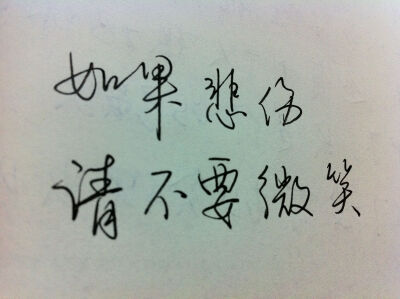 如果悲伤
请不要微笑